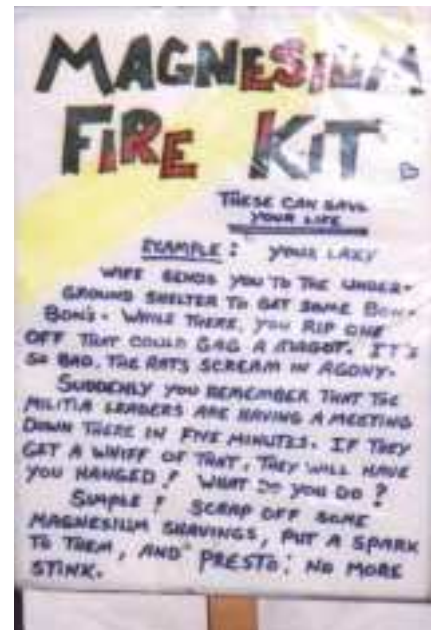 MAGNESIUM
FIRE KIT
THESE CAN SAVE
YOUR LIFE
EXAMPLE: YOUR LAZY
WIFE SENDS YOU TO THE UNDER-
GROUND SHELTER TO GET SOME BON-
BON'S. WHILE THERE, YOU RIP ONE
OFF THAT COULD GAG A MAGOT. IT'S
SO BAD, THE RATS SCREAM IN AGONY.
SUDDENLY YOU REMEMBER THAT THE
MILITIA LEADERS ARE HAVING A MEETING
DOWN THERE IN FIVE MINUTES. IF THEY
GET A WHIFF OF THAT, THEY WILL HAVE
YOU HANGED! WHAT DO YOU DO?
SIMPLE! SCRAP OFF SOME
MAGNESIUM SHAVINGS, PUT A SPARK
TO THEM, AND PRESTO; NO MORE
STINK.